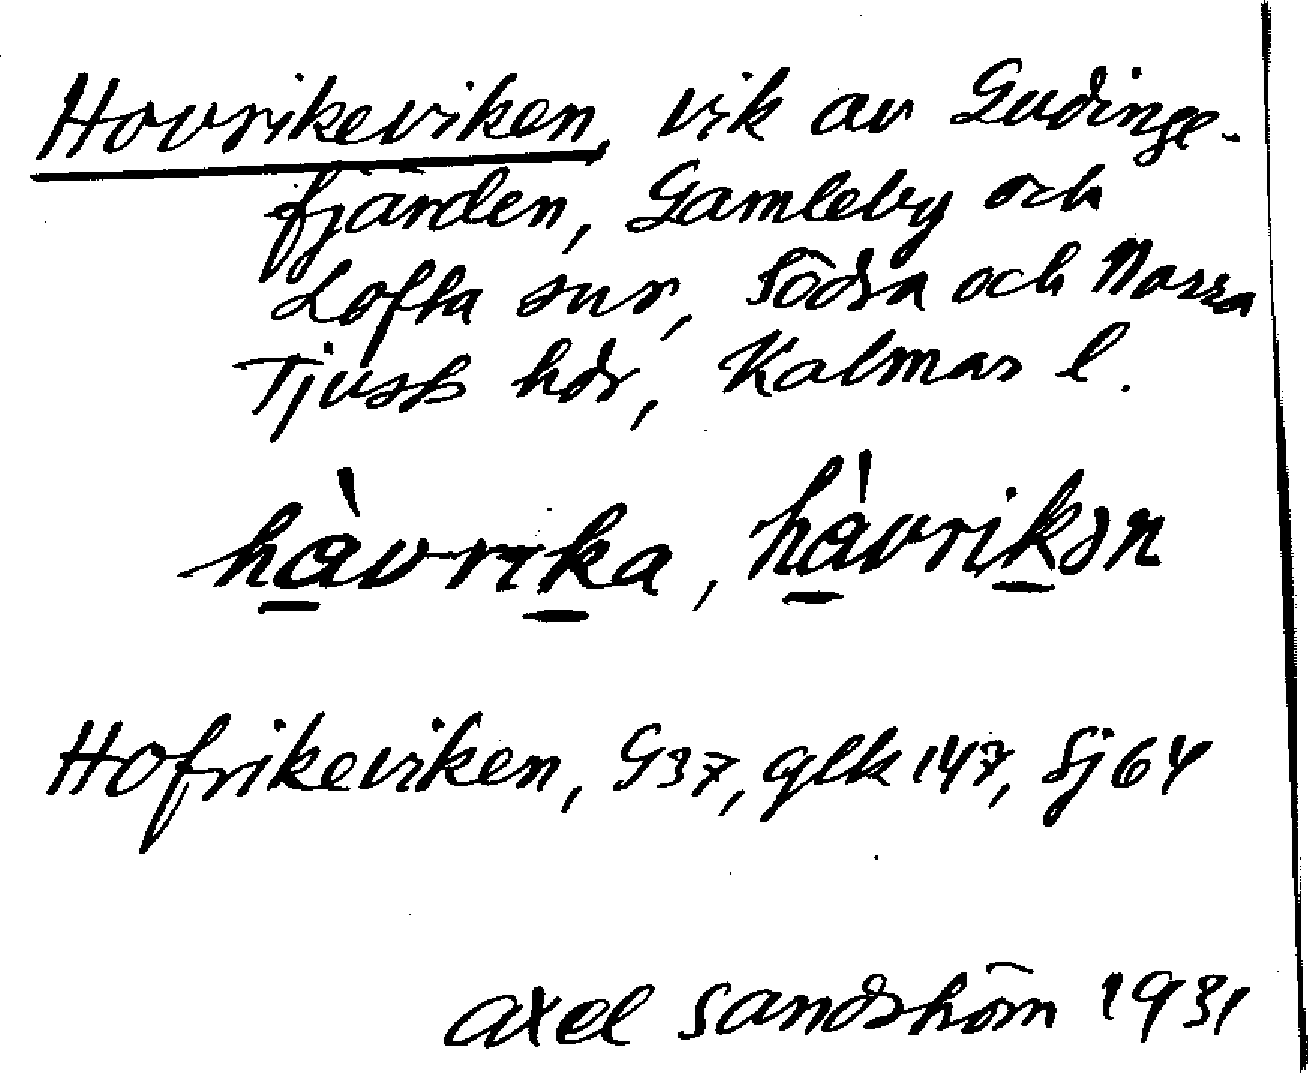 Hovrikeviken, vik av Gudinge-
fjärden, Gamleby och
Lofta snr, Södra och Norra
Tjusts hdr, Kalmar l.
hàvrika, hàvrikən
Hofrikeviken, G37, glk 147, Sj 64
Axel Sandström 1931